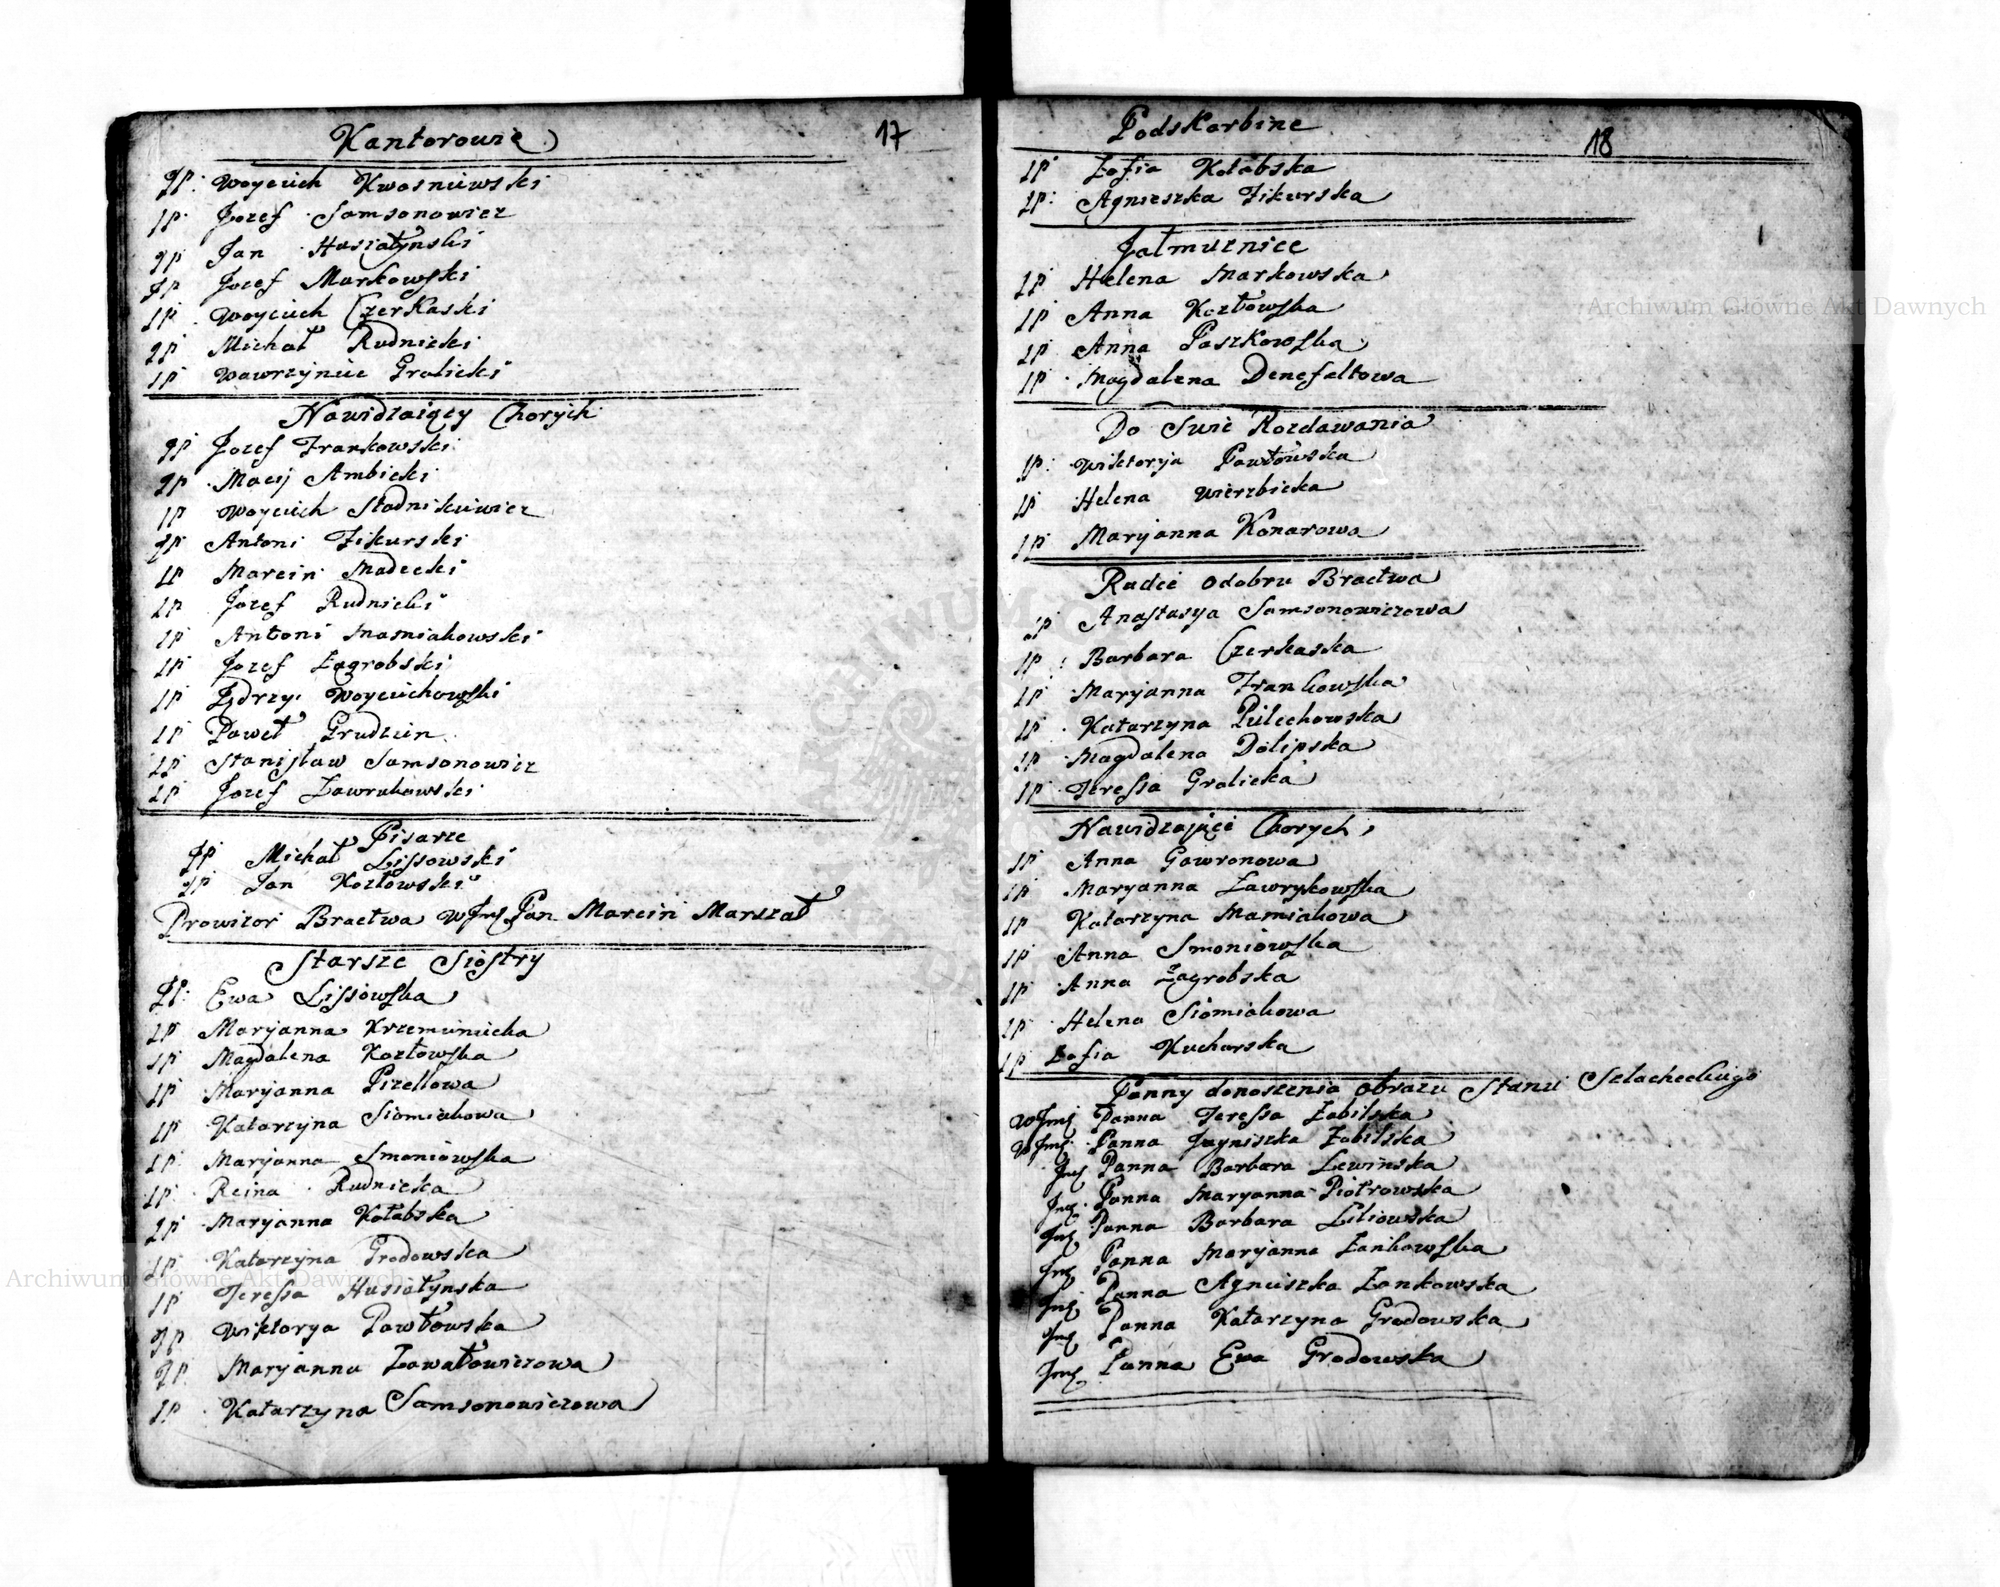 17
Kantorowie
JP: Woyciech Kwasniewski
JP Jozef Samsonowicz
JP Jan Husiatynski
JP Jozef Markowski
JP Woyciech Czerkaski
JP Michał Rudnicki
JP Wawrzyniec Gralicki
Nawidzaięcy Chorych
JP Jozef Frankowski
JP Macij Ambicki
JP Woyciech Stadnikiewicz
JP Antoni Fikurski
JP Marcin Madecki
JP Jozef Rudnicki
JP Antoni Mamiakowski
JP Jozef Zagrobski
JP Jędrzy Woyciechowski
JP Paweł Grudzien
JP Stanisław Samsonowicz
JP Jozef Zawrukowski
Pisarze
JP Michał Lissowski
JP Jan Kozłowski
Prowizor Bractwa WJmć Pan Marcin Marszał
Starsze Siostry
JP: Ewa Lissowska
JP Maryanna Krzemieniecka
JP Magdalena Kozłowska
JP Maryanna Pizellowa
JP Katarzyna Siomiakowa
JP Maryanna Smoniowska
JP Reina Rudnicka
JP Maryanna Kołabska
JP Katarzyna Grodowska
JP Teressa Husiatynska
JP Wiktorya Pawłowska
JP Maryanna Zawałowiczowa
JP Katarzyna Samsonowiczowa
18
Podskarbine
JP Zofia Kołabska
JP: Agnieszka Fikurska
Jałmuznice
JP Helena Markowska
JP Anna Kozłowska
JP Anna Paszkowska
JP Magdalena Denefeltowa
Do Swic Rozdawania
JP: Wiktoryja Pawłowska
JP Helena Wierzbicka
JP Maryanna Konarowa
Radce odobru Bractwa
JP Anastasya Samsonowiczowa
JP: Barbara Czerkaska
JP Maryanna Frankowska
JP Katarzyna Pielechowska
JP Magdalena Dolipska
JP Teressa Gralicka
Nawidzajęce Chorych
JP Anna Gawronowa
JP Maryanna Zawrykowska
JP Katarzyna Mamiakowa
JP Anna Smoniowska
JP Anna Zagrobska
JP Helena Siomiakowa
JP Zofia Kucharska
Panny donoszenia obrazu Stanu Szlacheckiego
WJmć Panna Teressa Zabilska
WJmć Panna Jagniszka Zabilska
Jmć Panna Barbara Lewinska
Jmć Panna Maryanna Piotrowska
Jmć Panna Barbara Liliowska
Jmć Panna Maryanna Zankowska
Jmć Panna Agnieszka Zankowska
Jmć Panna Katarzyna Grodowska
Jmć Panna Ewa Grodowska
Archiwum Główne Akt Dawnych
Archiwum Główne Akt Dawnych